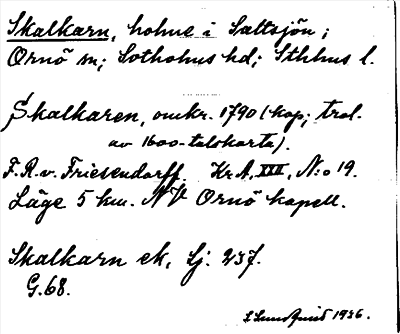 Skalkarn, holme i Saltsjön;
Ornö sn; Sotholms hd; Sthlms l.
Skalkaren, omkr. 1790 (kop; trol.
av 1600-talskarta).
F.R.v. Friesendorff. Kr.A. XXII, N:o 19.
Läge 5 km. NV Ornö kapell.
Skalkarn ek, Sj. 237.
G.68.
1936.